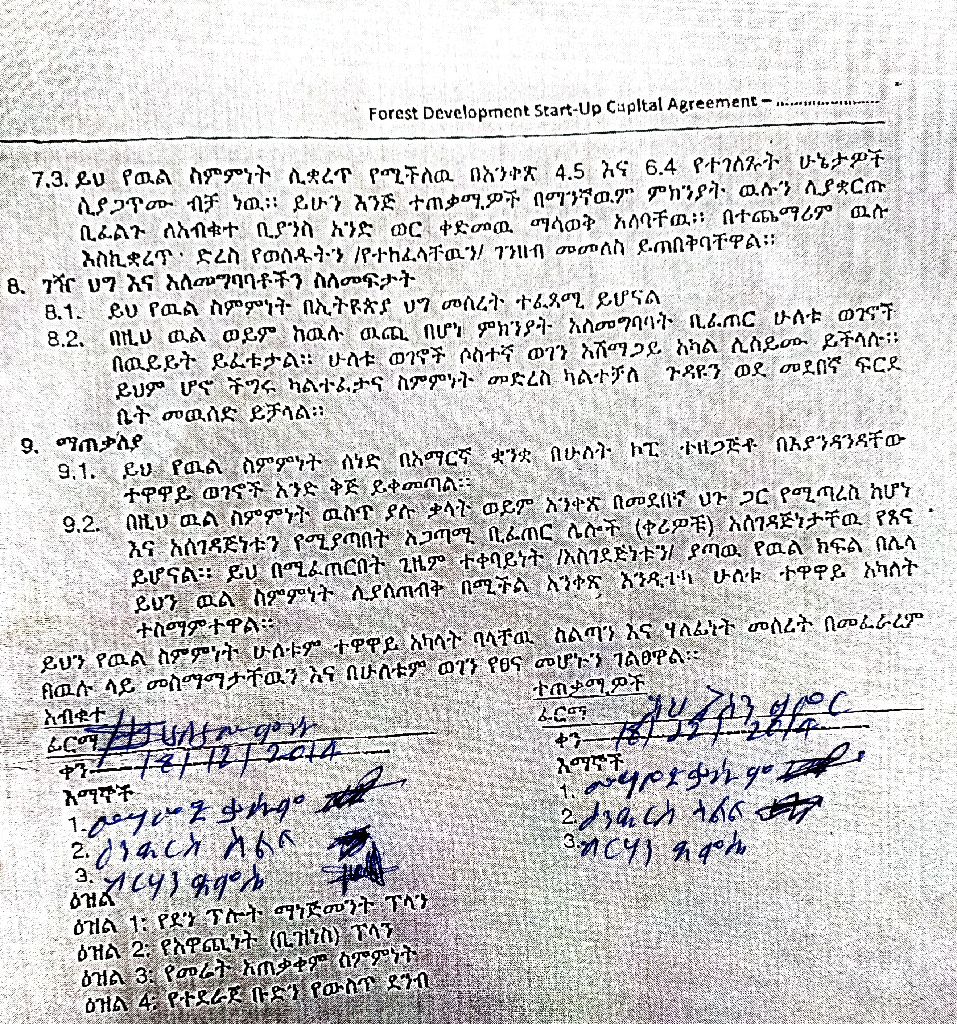 Forest Development Start-Up Capital Agreement – ........................
7.3. ይህ የዉል ስምምነት ሊቋረጥ የሚችለዉ በአንቀጽ 4.5 እና 6.4 የተገለጹት ሁኔታዎች
ሲያጋጥሙ ብቻ ነዉ፡፡ ይሁን እንጅ ተጠቃሚዎች በማንኛዉም ምክንያት ዉሉን ሊያቋርጡ
ቢፈልጉ ለአብቁተ ቢያንስ አንድ ወር ቀድመዉ ማሳወቅ አለባቸዉ፡፡ በተጨማሪም ዉሉ
እስኪቋረጥ ድረስ የወሰዱትን /የተከፈላቸዉን/ ገንዘብ መመለስ ይጠበቅባቸዋል፡፡
8. ገዥ ህግ እና አለመግባባቶችን ስለመፍታት
8.1. ይህ የዉል ስምምነት በኢትዮጵያ ህግ መሰረት ተፈጻሚ ይሆናል
8.2. በዚህ ዉል ወይም ከዉሉ ዉጪ በሆነ ምክንያት አለመግባባት ቢፈጠር ሁለቱ ወገኖች
በዉይይት ይፈቱታል፡፡ ሁለቱ ወገኖች ሶስተኛ ወገን አሸማጋይ አካል ሊሰይሙ ይችላሉ፡፡
ይህም ሆኖ ችግሩ ካልተፈታና ስምምነት መድረስ ካልተቻለ ጉዳዩን ወደ መደበኛ ፍርደ
ቤት መዉሰድ ይቻላል፡፡
9. ማጠቃለያ
9.1. ይህ የዉል ስምምነት ሰነድ በአማርኛ ቋንቋ በሁለት ኮፒ ተዘጋጅቶ በእያንዳንዳቸው
ተዋዋይ ወገኖች አንድ ቅጅ ይቀመጣል፡፡
9.2. በዚህ ዉል ስምምነት ዉስጥ ያሉ ቃላት ወይም አንቀጽ በመደበኛ ህጉ ጋር የሚጣረስ ከሆነ
እና አስገዳጅነቱን የሚያጣበት አጋጣሚ ቢፈጠር ሌሎች (ቀሪዎቹ) አስገዳጅነታቸዉ የጸና
ይሆናል፡፡ ይህ በሚፈጠርበት ጊዜም ተቀባይነት /አስገደጅነቱን/ ያጣዉ የዉል ክፍል በሌላ
ይህን ዉል ስምምነት ሊያስጠብቅ በሚችል አንቀጽ እንዲተካ ሁለቱ ተዋዋይ አካላት
ተስማምተዋል፡፡
ይህን የዉል ስምምነት ሁለቱም ተዋዋይ አካላት ባላቸዉ ስልጣን እና ሃላፊነት መሰረት በመፈራረም
በዉሉ ላይ መስማማታቸዉን እና በሁለቱም ወገን የፀና መሆኑን ገልፀዋል፡፡
አብቁተ
ፊርማ
ቀን 18/12/2014
እማኞች
1.
2. እንድርስ
3. ብርሃን
ተጠቃሚዎች
ፊርማ
ቀን 18/12/2014
እማኞች
1.
2. እንድርስ
3. ብርሃን
ዕዝል
ዕዝል 1: የደን ፕሎት ማነጅመንት ፕላን
ዕዝል 2: የአዋጪነት (ቢዝነስ) ፕላን
ዕዝል 3: የመሬት አጠቃቀም ስምምነት
ዕዝል 4: የተደራጀ ቡድን የውስጥ ደንብ